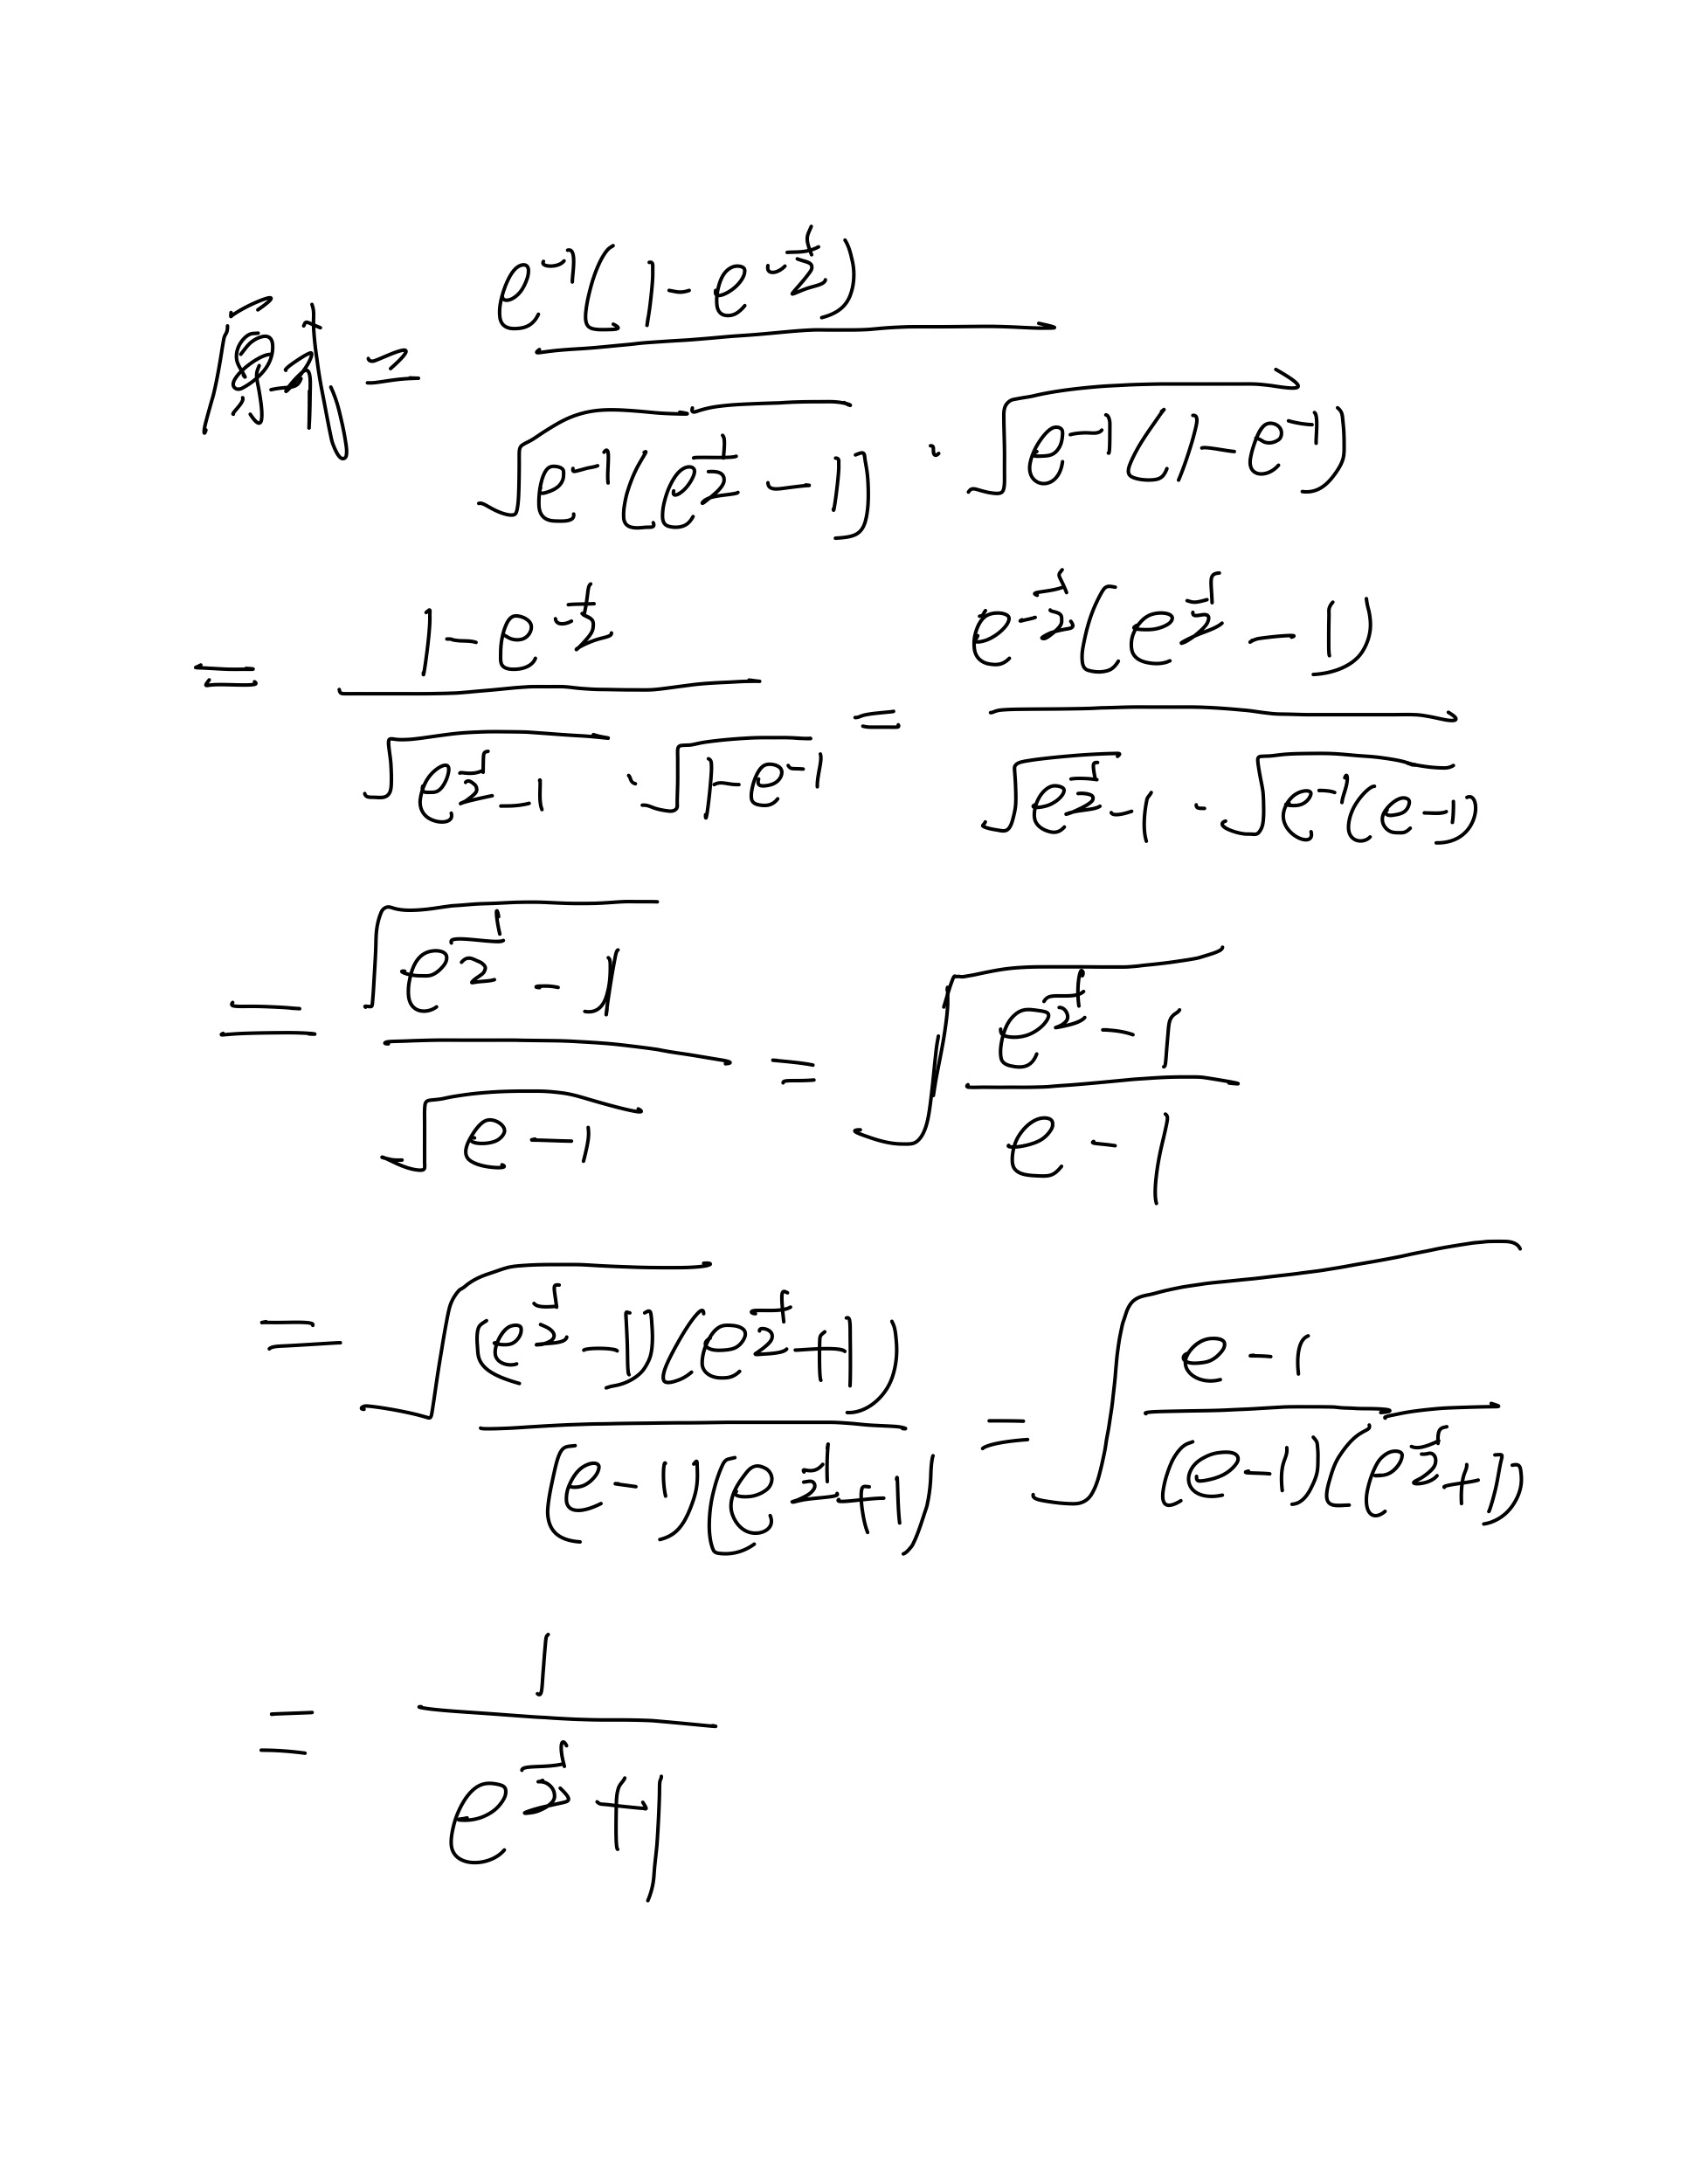 原式 = \frac{e^{-1}(1-e^{-\frac{1}{2}})}{\sqrt{e^{-1}(e^{\frac{1}{2}}-1)} \cdot \sqrt{e^{-1}(1-e^{-1})}}
= \frac{1-e^{-\frac{1}{2}}}{\sqrt{e^{\frac{1}{2}}-1} \cdot \sqrt{1-e^{-1}}} = \frac{e^{-\frac{1}{2}}(e^{\frac{1}{2}}-1)}{\sqrt{e^{\frac{1}{2}}-1} \cdot \sqrt{e^{-1}(e-1)}}
= \frac{\sqrt{e^{\frac{1}{2}}-1}}{\sqrt{e-1}} = \sqrt{\frac{e^{\frac{1}{2}}-1}{e-1}}
= \sqrt{\frac{(e^{\frac{1}{2}}-1)(e^{\frac{1}{2}}+1)}{(e-1)(e^{\frac{1}{2}}+1)}} = \sqrt{\frac{e-1}{(e-1)(e^{\frac{1}{2}}+1)}}
= \frac{1}{e^{\frac{1}{2}}+1}